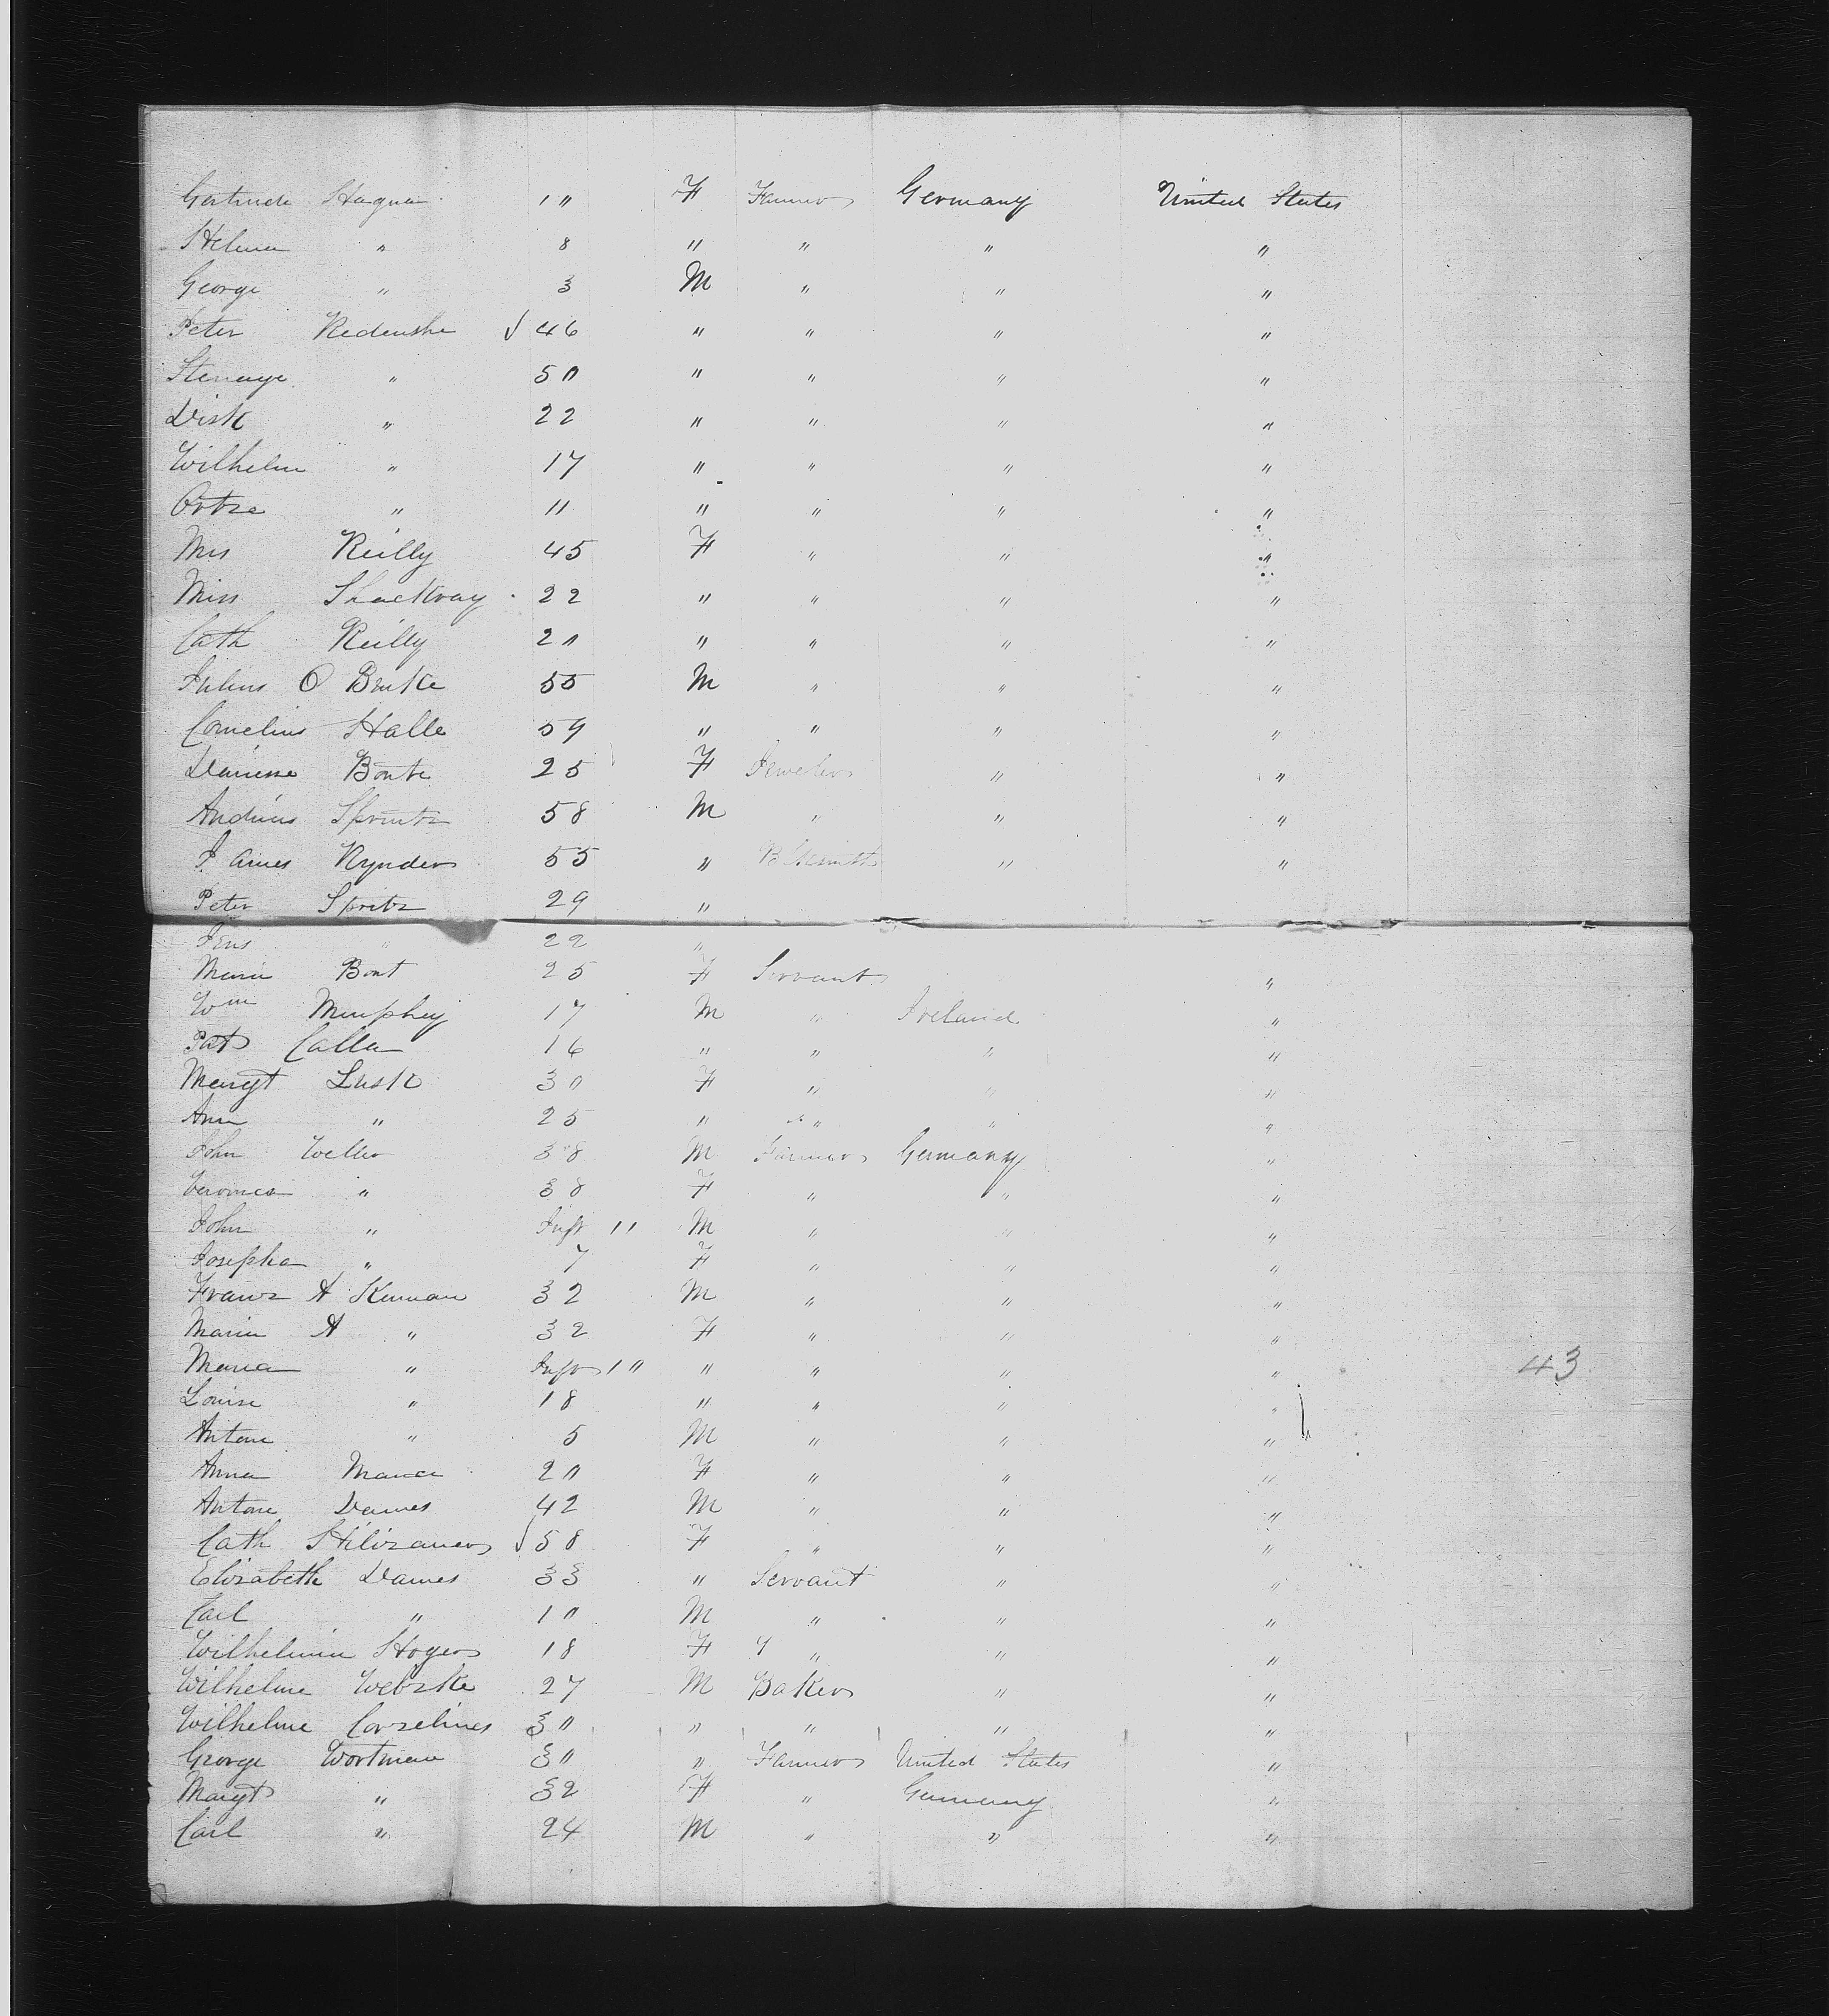 Gertrude Hagua 10 F Farmer Germany United States
Helma " 8 " " " "
George " 3 M " " "
Peter Redenske √ 46 " " " "
" 50 " " " "
Dirk " 22 " " " "
Wilhelm " 17 " " " "
" 11 " " " "
Mrs Reilly 45 F " " "
Miss Shackray 22 " " " "
Cath Reilly 20 " " " "
Julius O Brike 55 M " " "
Cornelius Halle 59 " " " "
Bonte 25 F Jeweler " "
Andries Sprintz 58 M " " "
James Rynders 55 " Blksmith " "
Peter Spritz 29 "
Jens " 22 "
Maria Bont 25 F Servant "
Wm Murphy 17 M " Ireland "
Pat Calla 16 " " " "
Margt Lusk 30 F " " "
Ann " 25 " " " "
John Weller 38 M Farmer Germany "
Veronica " 38 F " " "
John " Inft 11 M " " "
Josepha " 7 F " " "
Franz A Kuman 32 M " " "
Maria A " 32 F " " "
Maria " Inft 10 " " " " 43
Louise " 18 " " " "
Antone " 5 M " " "
Anna Maria 20 F " " "
Antone Dames 42 M " " "
Cath √ 58 F " " "
Elizabeth Dames 33 " Servant " "
Carl " 10 M " " "
Wilhelmina Hoger 18 F " " "
Wilhelme Webske 27 M Baker " "
Wilhelme Corzelines 30 " " " "
George Wortman 30 " Farmer United States "
Margt " 32 F " Germany "
Carl " 24 M " " "